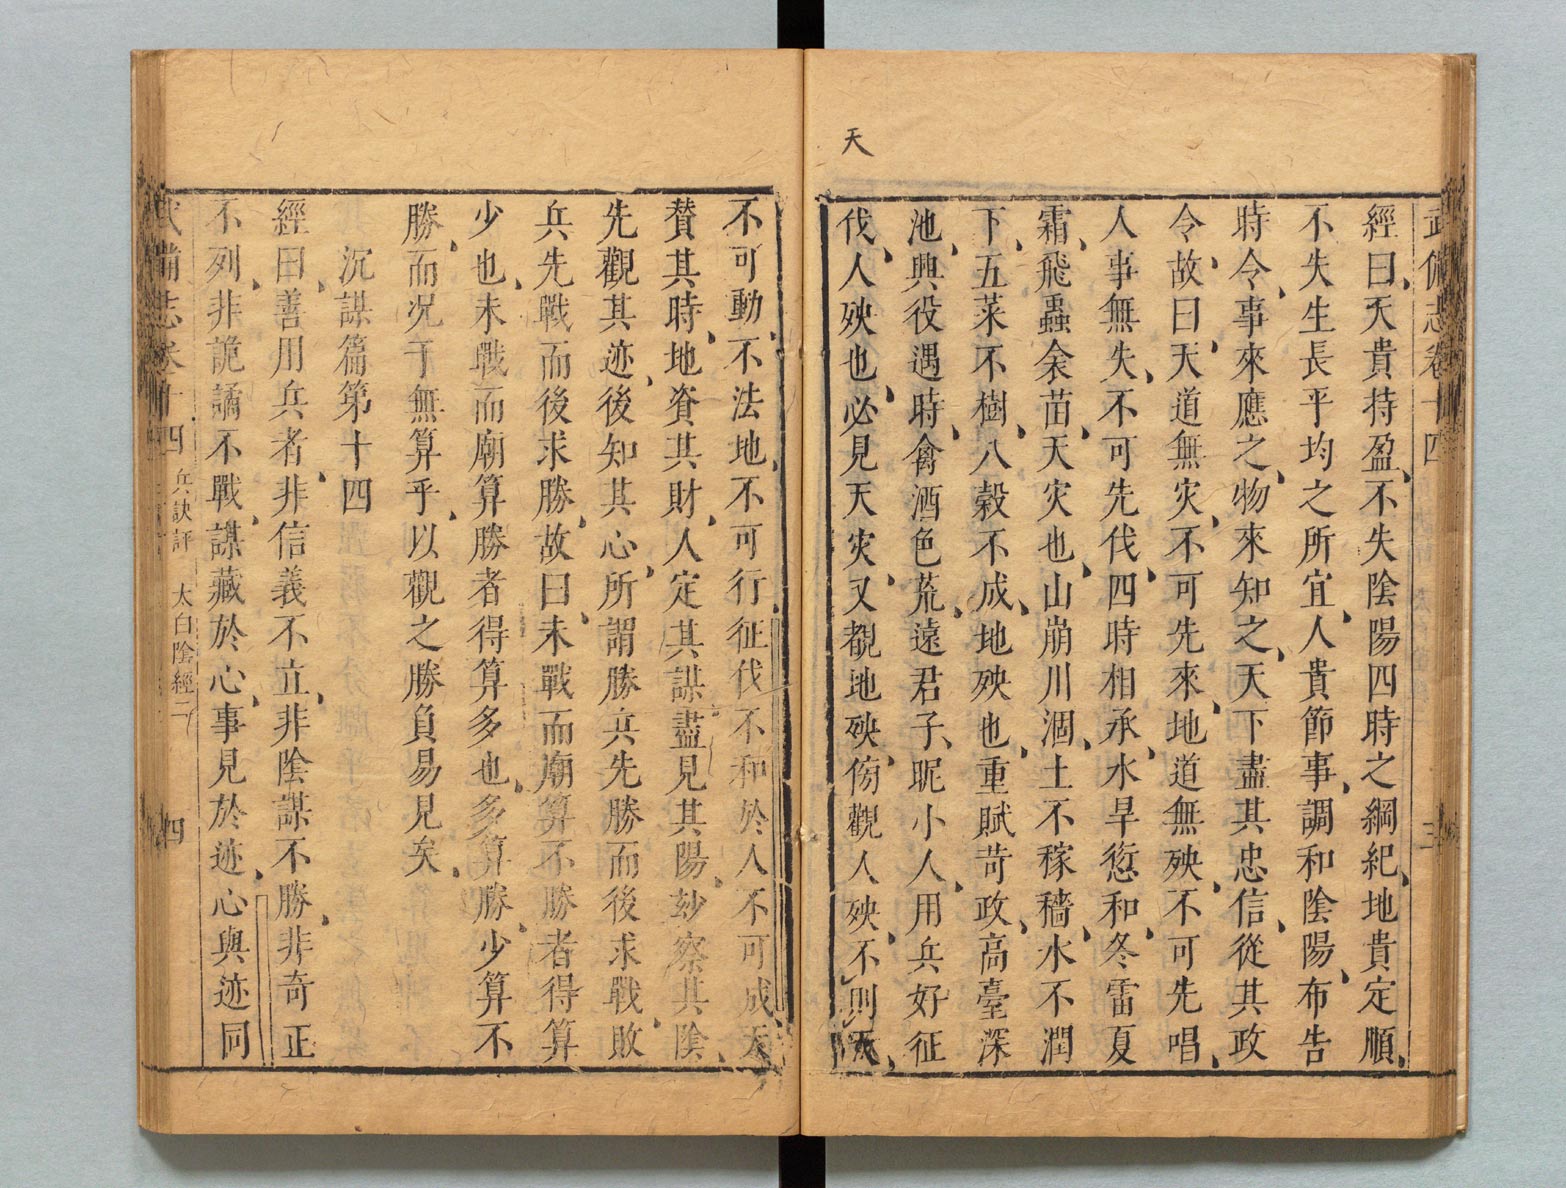 天
武備志卷十四
三
經曰天貴持盈不失陰陽四時之綱紀地貴定順
不失生長平均之所宜人貴節事調和陰陽布告
時令事來應之物來知之天下盡其忠信從其政
令故曰天道無灾不可先來地道無殃不可先唱
人事無失不可先伐四時相承水旱愆和冬雷夏
霜飛蟲食苗天灾也山崩川涸土不稼穡水不潤
下五菜不樹八穀不成地殃也重賦苛政高臺深
池興役遇時禽酒色荒遠君子昵小人用兵好征
伐人殃也必見天灾又覩地殃傍觀人殃不則天
不可動不法地不可行征伐不和於人不可成天
贊其時地資其財人定其謀盡見其陽玅察其陰
先觀其迹後知其心所謂勝兵先勝而後求戰敗
兵先戰而後求勝故曰未戰而廟算不勝者得算
少也未戰而廟算勝者得算多也多算勝少算不
勝而况于無算乎以觀之勝負易見矣
沉謀篇第十四
經曰善用兵者非信義不立非陰謀不勝非奇正
不列非詭譎不戰謀藏於心事見於迹心與迹同
武備志卷十四 兵訣評 太白陰經二 四